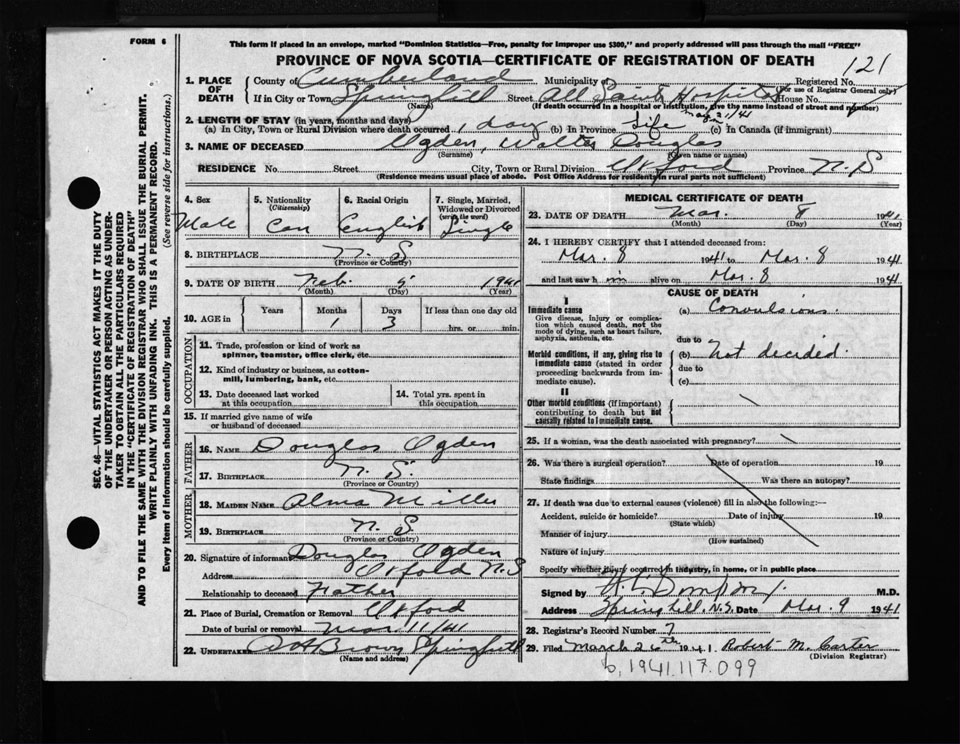 FORM 6
This form if placed in an envelope, marked "Dominion Statistics—Free, penalty for improper use $300," and properly addressed will pass through the mail "FREE"
PROVINCE OF NOVA SCOTIA—CERTIFICATE OF REGISTRATION OF DEATH
121
SEC. 46—VITAL STATISTICS ACT MAKES IT THE DUTY
OF THE UNDERTAKER OR PERSON ACTING AS UNDER-
TAKER TO OBTAIN ALL THE PARTICULARS REQUIRED
IN THE "CERTIFICATE OF REGISTRATION OF DEATH"
AND TO FILE THE SAME WITH THE DIVISION REGISTRAR WHO SHALL ISSUE THE BURIAL PERMIT.
WRITE PLAINLY WITH UNFADING INK. THIS IS A PERMANENT RECORD.
Every item of information should be carefully supplied. (See reverse side for instructions.)
1. PLACE OF DEATH
County of Cumberland Municipality Registered No.
(For use of Registrar General only)
If in City or Town Springhill Street All Saints Hospital House No.
(Name) (If death occurred in a hospital or institution, give the name instead of street and number)
2. LENGTH OF STAY (in years, months and days)
(a) In City, Town or Rural Division where death occurred 1 day (b) In Province Life (c) In Canada (if immigrant)
3. NAME OF DECEASED Ogden, Walter Douglas
(Surname) (Given name or names)
RESIDENCE No. Street City, Town or Rural Division Oxford Province N.S
(Residence means usual place of abode. Post Office Address for residents in rural parts not sufficient)
4. Sex Male
5. Nationality (Citizenship) Can
6. Racial Origin English
7. Single, Married, Widowed or Divorced (write the word) Single
8. BIRTHPLACE N. S
(Province or Country)
9. DATE OF BIRTH Feb. 5 1941
(Month) (Day) (Year)
10. AGE in Years Months 1 Days 3 If less than one day old hrs. or min.
OCCUPATION
11. Trade, profession or kind of work as spinner, teamster, office clerk, etc.
12. Kind of industry or business, as cotton-mill, lumbering, bank, etc.
13. Date deceased last worked at this occupation
14. Total yrs. spent in this occupation
15. If married give name of wife or husband of deceased
FATHER
16. NAME Douglas Ogden
17. BIRTHPLACE N. S.
(Province or Country)
MOTHER
18. MAIDEN NAME Alma Miller
19. BIRTHPLACE N. S
(Province or Country)
20. Signature of informant Douglas Ogden
Address Oxford N.S
Relationship to deceased Father
21. Place of Burial, Cremation or Removal Oxford
Date of burial or removal Mar 11/41
22. UNDERTAKER Brown Springhill
(Name and address)
MEDICAL CERTIFICATE OF DEATH
23. DATE OF DEATH Mar. 8 1941
(Month) (Day) (Year)
24. I HEREBY CERTIFY that I attended deceased from:
Mar. 8 1941 to Mar. 8 1941
and last saw h im alive on Mar. 8 1941
CAUSE OF DEATH
I
Immediate cause
Give disease, injury or complication which caused death, not the mode of dying, such as heart failure, asphyxia, asthenia, etc.
(a) Convulsions.
due to
Morbid conditions, if any, giving rise to immediate cause (stated in order proceeding backwards from immediate cause).
(b) Not decided.
due to
(c)
II
Other morbid conditions (if important) contributing to death but not causally related to immediate cause.
25. If a woman, was the death associated with pregnancy?
26. Was there a surgical operation? Date of operation 19
State findings Was there an autopsy?
27. If death was due to external causes (violence) fill in also the following:—
Accident, suicide or homicide? Date of injury 19
(State which)
Manner of injury
(How sustained)
Nature of injury
Specify whether injury occurred in industry, in home, or in public place
Signed by M.D.
Address Springhill, N.S. Date Mar. 9 1941
28. Registrar's Record Number 7
29. Filed March 26th 1941 Robert M. Carter
(Division Registrar)
6, 1941.117.099